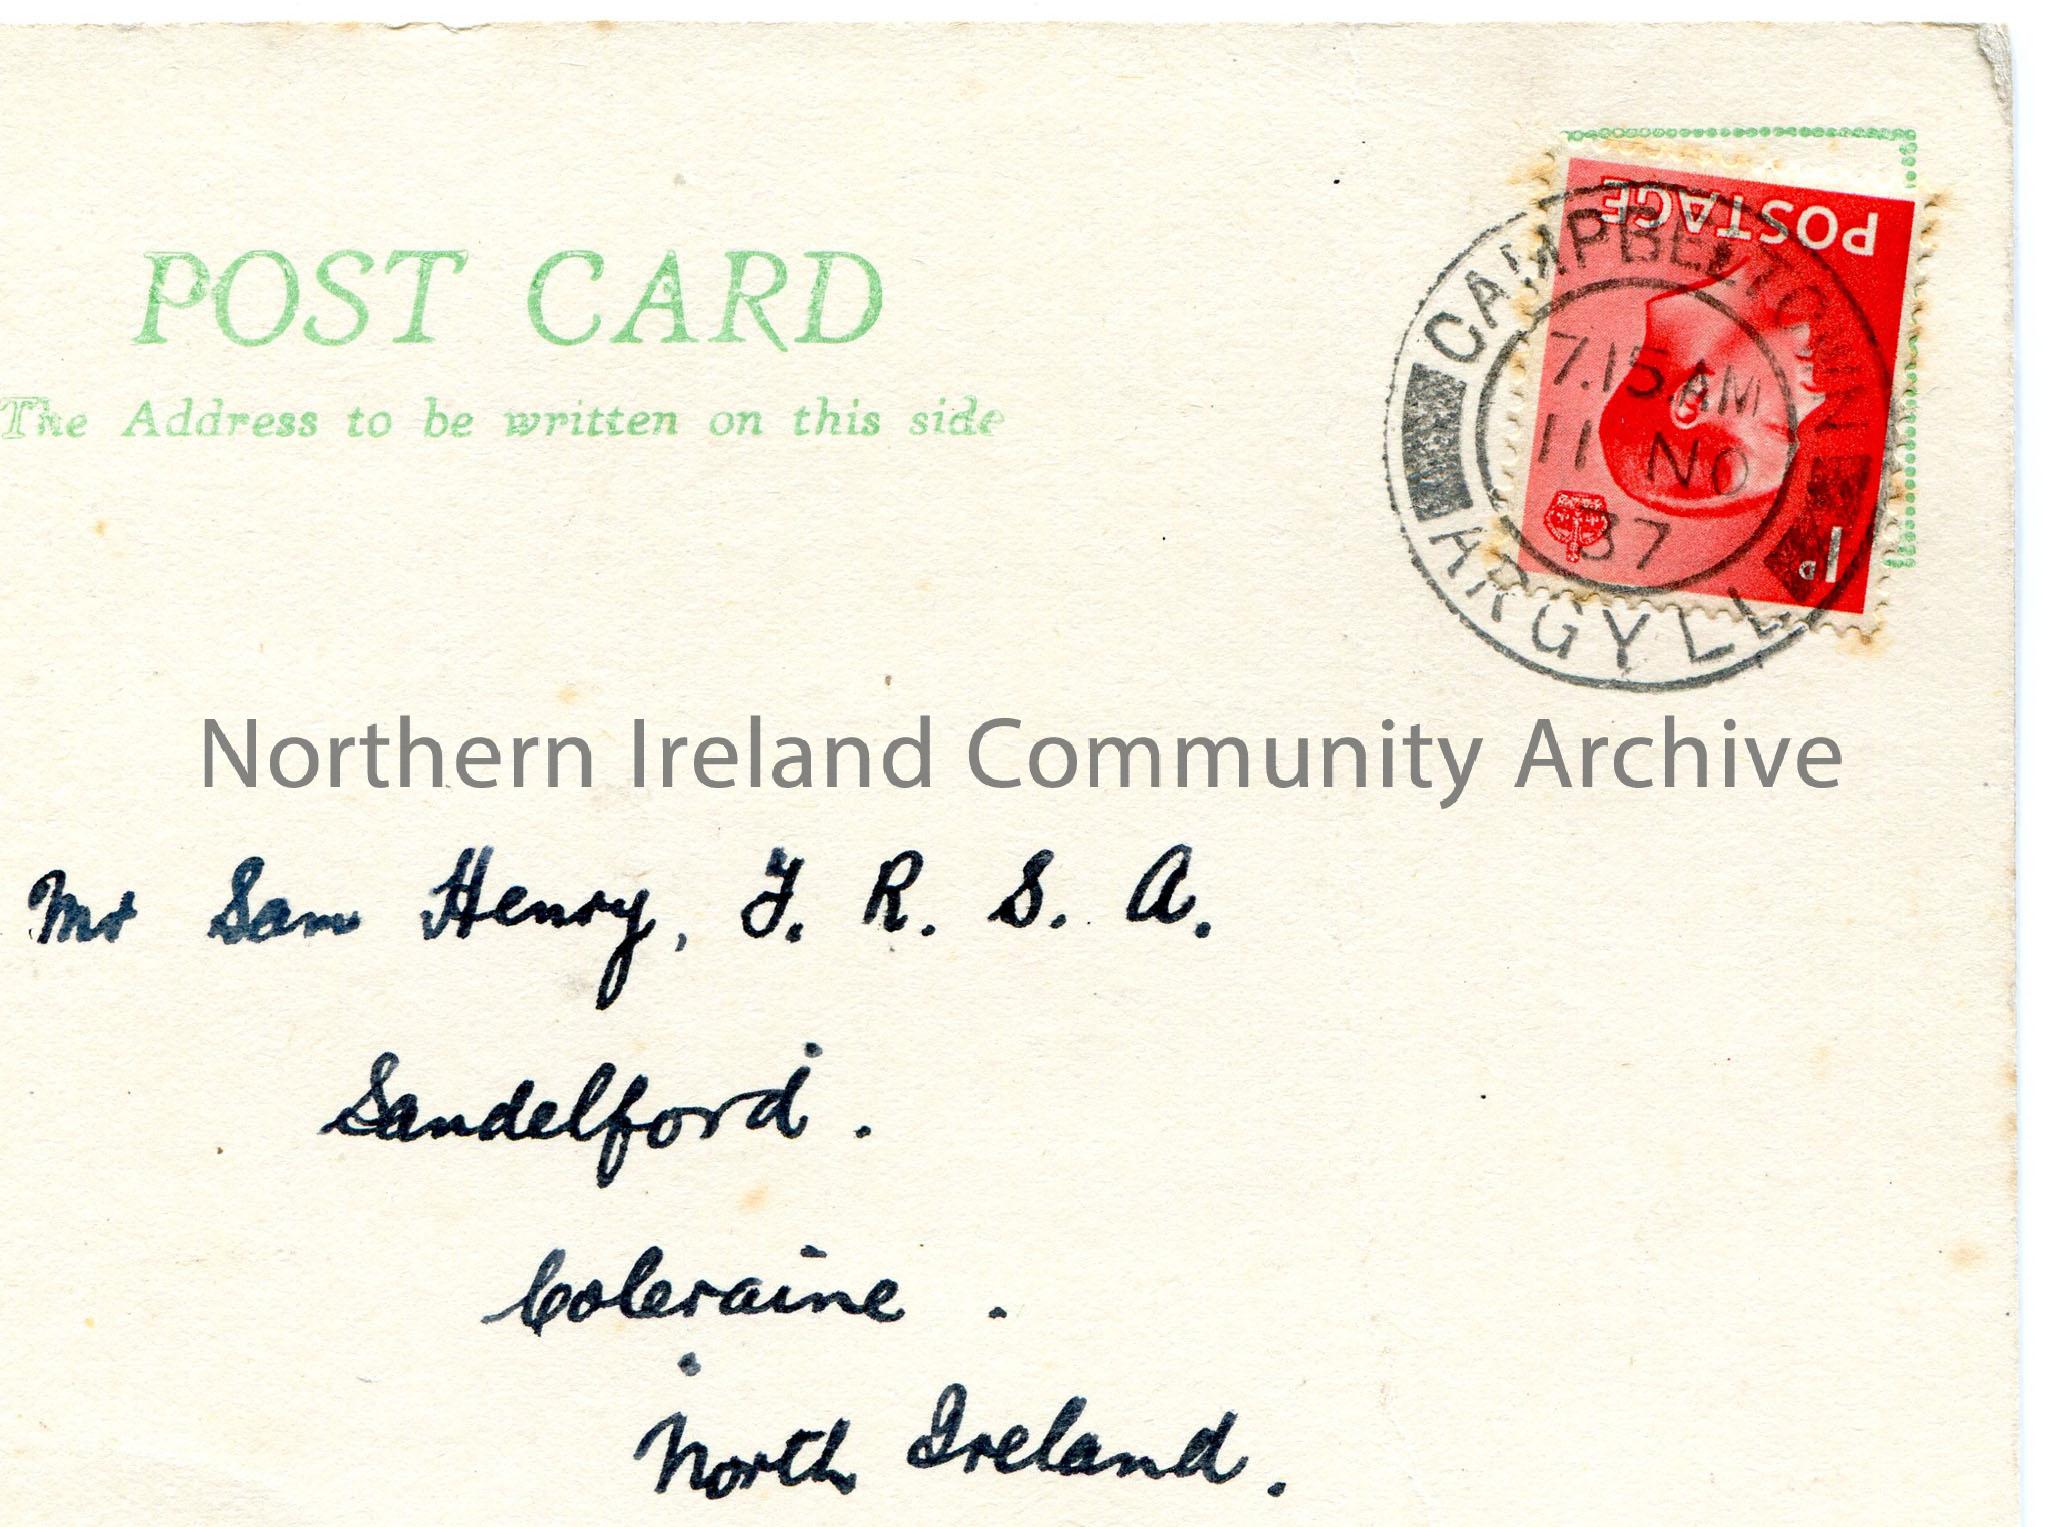 POST CARD
The Address to be written on this side
POSTAGE
1D
CAMPBELTOWN
7.15 AM
11 NO
37
ARGYLL
Northern Ireland Community Archive
Mr Sam Henry, F. R. S. A.
Sandelford.
Coleraine.
North Ireland.